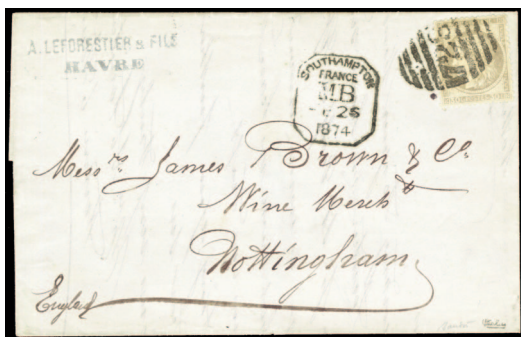 A. LEFORESTIER & FILS
HAVRE
SOUTHAMPTON
FRANCE
MB
26
1874
Messrs James Brown & Co.
Wine Merch
Nottingham
England